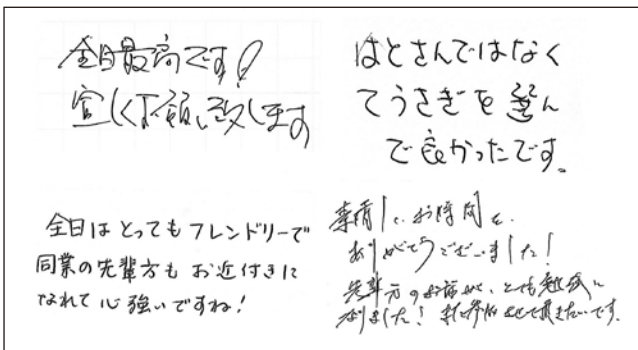 全日最高です!
宜しくお願い致します
はとさんではなく
てうさぎを選ん
で良かったです。
全日はとってもフレンドリーで
同業の先輩方もお近付きに
なれて心強いですね!
素晴しいお時間を
ありがとうございました!
先輩方のお話が、とても勉強に
なりました! また参加させて頂きたいです。